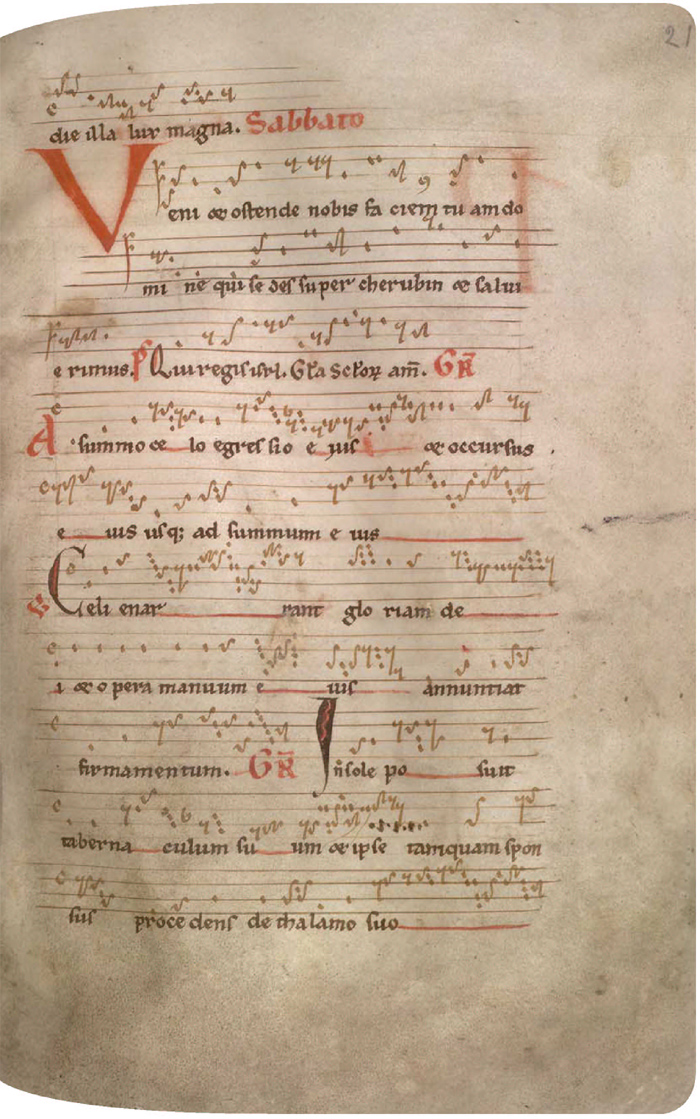 21
die illa lux magna. Sabbato
Veni & ostende nobis fa ciem tu am do
mi ne qui se des super cherubin & salui
e rimus. Ps Qui regis isrl. Gra Sctor am. GR
A summo ce lo egres sio e ius & occursus
e ius usq; ad summum e ius
V Celi enar rant glo riam de
i & o pera manuum e ius annuntiat
firmamentum. GR In sole po suit
taberna culum su um & ipse tamquam spon
sus proce dens de thalamo suo